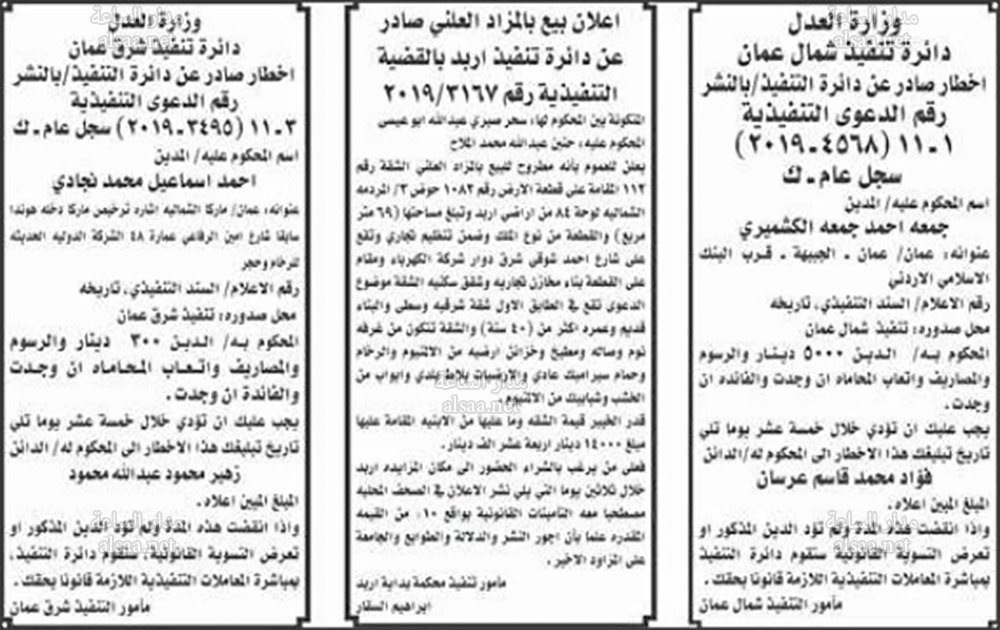 وزارة العدل
دائرة تنفيذ شمال عمان
اخطار صادر عن دائرة التنفيذ/بالنشر
رقم الدعوى التنفيذية
١-١١ (٤٥٦٨-٢٠١٩)
سجل عام - ك
اسم المحكوم عليه/ المدين
جمعه احمد جمعه الكشميري
عنوانه: عمان/ عمان - الجبيهة - قرب البنك
الاسلامي الاردني
رقم الاعلام/ السند التنفيذي، تاريخه
محل صدوره: تنفيذ شمال عمان
المحكوم به/ الدين ٥٠٠٠ دينار والرسوم
والمصاريف واتعاب المحاماه ان وجدت والفائده ان
وجدت.
يجب عليك ان تؤدي خلال خمسة عشر يوما تلي
تاريخ تبليغك هذا الاخطار الى المحكوم له/الدائن
فؤاد محمد قاسم عرسان
المبلغ المبين اعلاه.
واذا انقضت هذه المدة ولم تؤد الدين المذكور او
تعرض التسوية القانونية، ستقوم دائرة التنفيذ
بمباشرة المعاملات التنفيذية اللازمة قانونا بحقك.
مأمور التنفيذ شمال عمان
اعلان بيع بالمزاد العلني صادر
عن دائرة تنفيذ اربد بالقضية
التنفيذية رقم ٢٠١٩/٣١٦٧
المتكونة بين المحكوم لها: سحر صبري عبدالله ابو عيسى
المحكوم عليه: حنين عبدالله محمد الملاح
يعلن للعموم بأنه مطروح للبيع بالمزاد العلني الشقة رقم
١١٢ المقامة على قطعة الارض رقم ١٠٨٢ حوض ٣/ المردمه
الشماليه لوحة ٨٤ من اراضي اربد وتبلغ مساحتها (٦٩ متر
مربع) والقطعة من نوع الملك وضمن تنظيم تجاري وتقع
على شارع احمد شوقي شرق دوار شركة الكهرباء ومقام
على القطعة بناء مخازن تجاريه وشقق سكنيه الشقة موضوع
الدعوى تقع في الطابق الاول شقة شرقيه وسطى والبناء
قديم وعمره اكثر من (٤٠ سنة) والشقة تتكون من غرفه
نوم وصاله ومطبخ وخزائن ارضيه من الالمنيوم والرخام
وحمام سيراميك عادي والارضيات بلاط بلدي وابواب من
الخشب وشبابيك من الالمنيوم.
قدر الخبير قيمة الشقه وما عليها من الابنيه المقامة عليها
مبلغ ١٤٠٠٠ دينار اربعة عشر الف دينار.
فعلى من يرغب بالشراء الحضور الى مكان المزايده اربد
خلال ثلاثين يوما التي يلي نشر الاعلان في الصحف المحليه
مصطحبا معه التأمينات القانونية بواقع ١٠٪ من القيمه
المقدره علما بأن اجور النشر والدلالة والطوابع والجامعة
على المزاود الاخير.
مأمور تنفيذ محكمة بداية اربد
ابراهيم السقار
وزارة العدل
دائرة تنفيذ شرق عمان
اخطار صادر عن دائرة التنفيذ/بالنشر
رقم الدعوى التنفيذية
٣-١١ (٣٤٩٥-٢٠١٩) سجل عام - ك
اسم المحكوم عليه/ المدين
احمد اسماعيل محمد نجادي
عنوانه: عمان/ ماركا الشماليه اشاره ترخيص ماركا دخله هوندا
سابقا شارع امين الرفاعي عمارة ٤٨ الشركة الدوليه الحديثه
للرخام وحجر
رقم الاعلام/ السند التنفيذي، تاريخه
محل صدوره: تنفيذ شرق عمان
المحكوم به/ الدين ٣٠٠ دينار والرسوم
والمصاريف واتعاب المحاماه ان وجدت
والفائدة ان وجدت.
يجب عليك ان تؤدي خلال خمسة عشر يوما تلي
تاريخ تبليغك هذا الاخطار الى المحكوم له/الدائن
زهير محمود عبدالله محمود
المبلغ المبين اعلاه.
واذا انقضت هذه المدة ولم تؤد الدين المذكور او
تعرض التسوية القانونية، ستقوم دائرة التنفيذ،
بمباشرة المعاملات التنفيذية اللازمة قانونا بحقك.
مأمور التنفيذ شرق عمان
مدار الساعة
alsaa.net